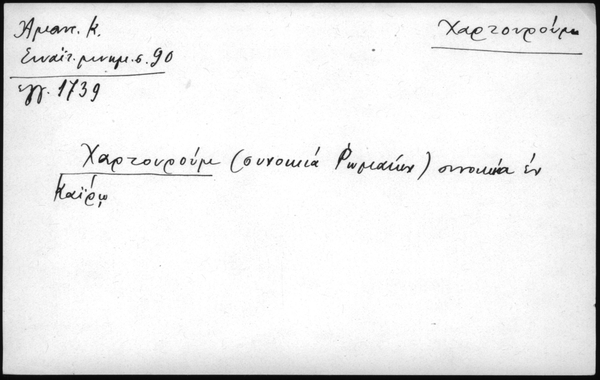 Ἄμαντ. Κ.
Σιναϊτ. μνημ. σ. 90
ἔγγ. 1739
Χαρτουρούμ
Χαρτουρούμ (συνοικιά Ῥωμαίων) συνοικία ἐν
Καΐρῳ